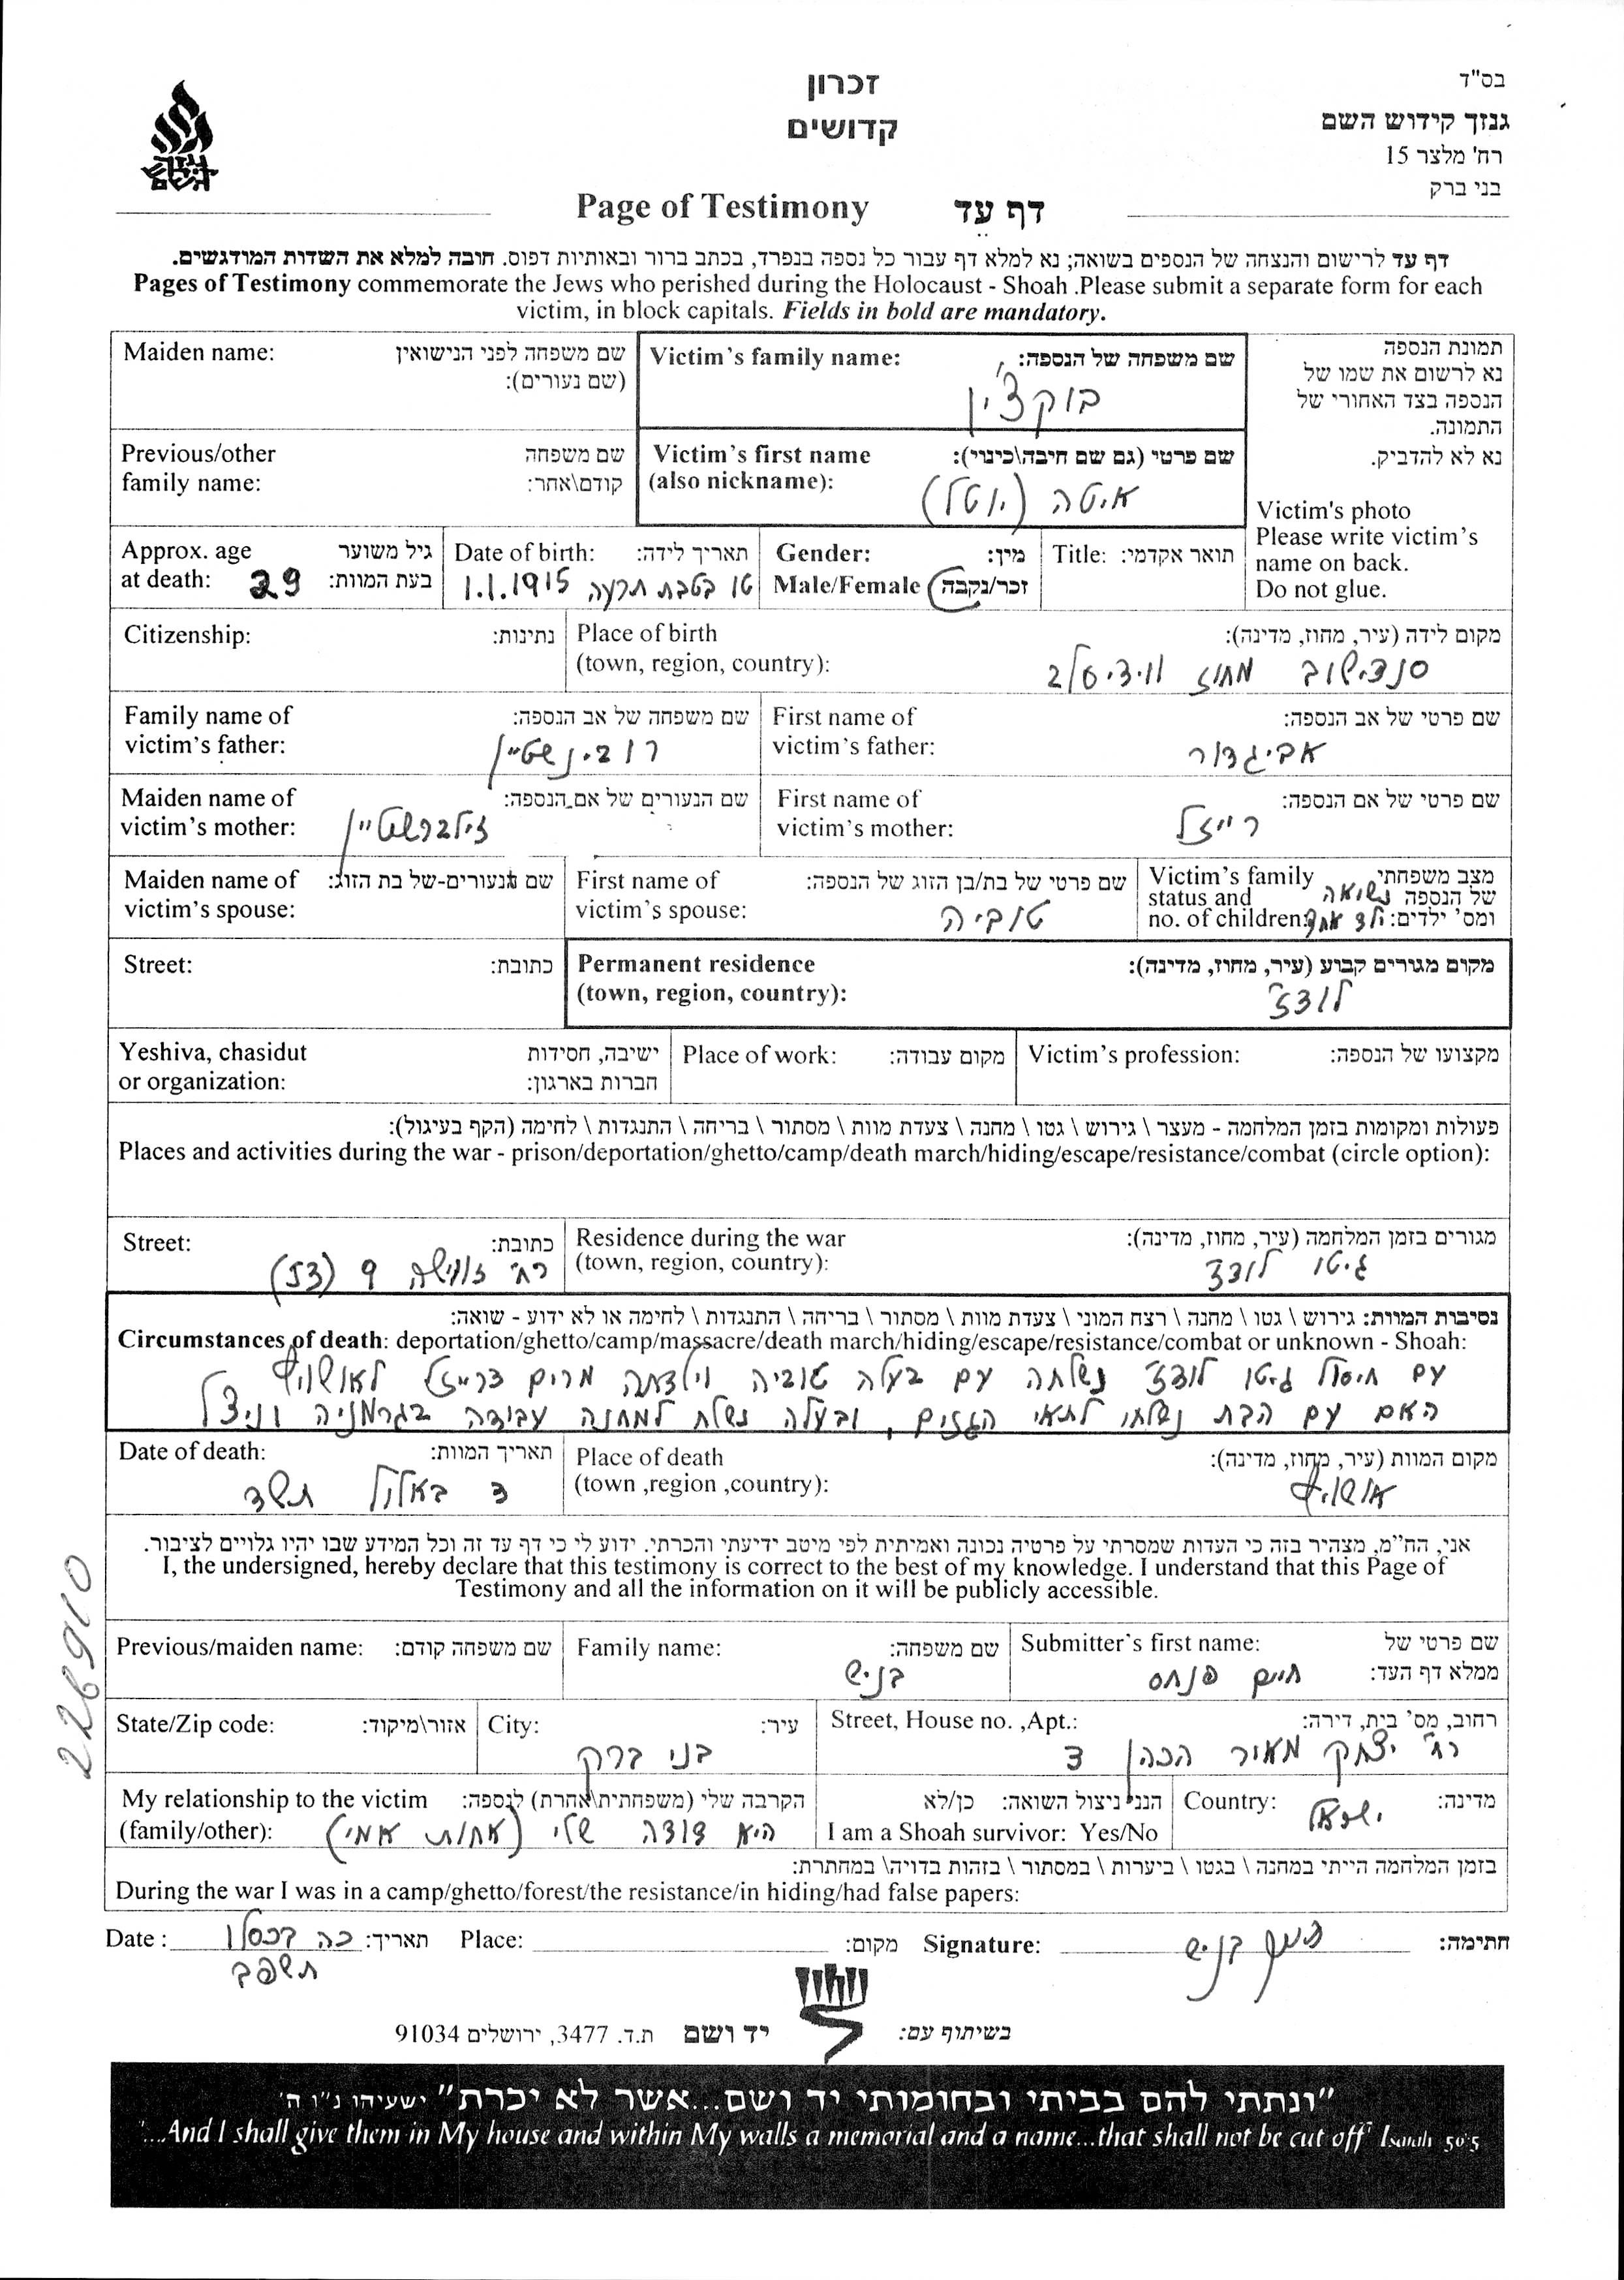 בס"ד
גנזך קידוש השם
רח' מלצר 15
בני ברק
זכרון
קדושים
גנזך קידוש השם
Page of Testimony דף עֵד
דף עד לרישום והנצחה של הנספים בשואה; נא למלא דף עבור כל נספה בנפרד, בכתב ברור ובאותיות דפוס. חובה למלא את השדות המודגשים.
Pages of Testimony commemorate the Jews who perished during the Holocaust - Shoah .Please submit a separate form for each
victim, in block capitals. Fields in bold are mandatory.
תמונת הנספה
נא לרשום את שמו של
הנספה בצד האחורי של
התמונה.
נא לא להדביק.
Victim's photo
Please write victim's
name on back.
Do not glue.
Victim's family name: שם משפחה של הנספה:
בוקצ'ין
Maiden name: שם משפחה לפני הנישואין
(שם נעורים):
Victim's first name שם פרטי (גם שם חיבה\כינוי):
(also nickname):
איטה (יוטל)
Previous/other שם משפחה
family name: קודם\אחר:
Title: תואר אקדמי:
Gender: מין:
Male/Female זכר/נקבה
Date of birth: תאריך לידה:
טו בטבת תרעה 1.1.1915
Approx. age גיל משוער
at death: 29 בעת המוות:
Place of birth מקום לידה (עיר, מחוז, מדינה):
(town, region, country):
סנדישוב מחוז
Citizenship: נתינות:
First name of שם פרטי של אב הנספה:
victim's father: אביגדור
Family name of שם משפחה של אב הנספה:
victim's father: רובינשטיין
First name of שם פרטי של אם הנספה:
victim's mother: רייזל
Maiden name of שם הנעורים של אם הנספה:
victim's mother: זילברשטיין
Victim's family מצב משפחתי
status and של הנספה נשואה
no. of children: ומס' ילדים: ילד אחד
First name of שם פרטי של בת/בן הזוג של הנספה:
victim's spouse: טוביה
Maiden name of שם הנעורים-של בת הזוג:
victim's spouse:
Permanent residence מקום מגורים קבוע (עיר, מחוז, מדינה):
(town, region, country): לודז'
Street: כתובת:
Victim's profession: מקצועו של הנספה:
Place of work: מקום עבודה:
Yeshiva, chasidut ישיבה, חסידות
or organization: חברות בארגון:
פעולות ומקומות בזמן המלחמה - מעצר \ גירוש \ גטו \ מחנה \ צעדת מוות \ מסתור \ בריחה \ התנגדות \ לחימה (הקף בעיגול):
Places and activities during the war - prison/deportation/ghetto/camp/death march/hiding/escape/resistance/combat (circle option):
Residence during the war מגורים בזמן המלחמה (עיר, מחוז, מדינה):
(town, region, country): גיטו לודז
Street: כתובת:
רח' 9
נסיבות המוות: גירוש \ גטו \ מחנה \ רצח המוני \ צעדת מוות \ מסתור \ בריחה \ התנגדות \ לחימה או לא ידוע - שואה:
Circumstances of death: deportation/ghetto/camp/massacre/death march/hiding/escape/resistance/combat or unknown - Shoah:
עם חיסול גיטו לודז' נשלחה עם בעלה טוביה וילדתה מרים ברייזל לאושויץ
האם עם הבת נשלחו לתאי הגזים, ובעלה נשלח למחנה עבודה בגרמניה וניצל
Place of death מקום המוות (עיר, מחוז, מדינה):
(town ,region ,country): אושויץ
Date of death: תאריך המוות:
ג באלול תשד
אני, הח"מ, מצהיר בזה כי העדות שמסרתי על פרטיה נכונה ואמיתית לפי מיטב ידיעתי והכרתי. ידוע לי כי דף עד זה וכל המידע שבו יהיו גלויים לציבור.
I, the undersigned, hereby declare that this testimony is correct to the best of my knowledge. I understand that this Page of
Testimony and all the information on it will be publicly accessible.
Submitter's first name: שם פרטי של
ממלא דף העד: חיים פנחס
Family name: שם משפחה:
בניש
Previous/maiden name: שם משפחה קודם:
Street, House no. ,Apt.: רחוב, מס' בית, דירה:
רח' יצחק מאיר הכהן 3
City: עיר:
בני ברק
State/Zip code: אזור\מיקוד:
Country: מדינה:
ישראל
הנני ניצול השואה: כן/לא
I am a Shoah survivor: Yes/No
My relationship to the victim הקרבה שלי (משפחתית\אחרת) לנספה:
(family/other): היא דודה שלי (אחות אמי)
בזמן המלחמה הייתי במחנה \ בגטו \ ביערות \ במסתור \ בזהות בדויה\ במחתרת:
During the war I was in a camp/ghetto/forest/the resistance/in hiding/had false papers:
חתימה: בניש Signature: מקום: Place: תאריך: כה בכסלו Date :
תשפב
226910
בשיתוף עם: יד ושם ת.ד. 3477, ירושלים 91034
"ונתתי להם בביתי ובחומותי יד ושם...אשר לא יכרת" ישעיהו נ"ו ה'
"...And I shall give them in My house and within My walls a memorial and a name...that shall not be cut off" Isaiah 56:5